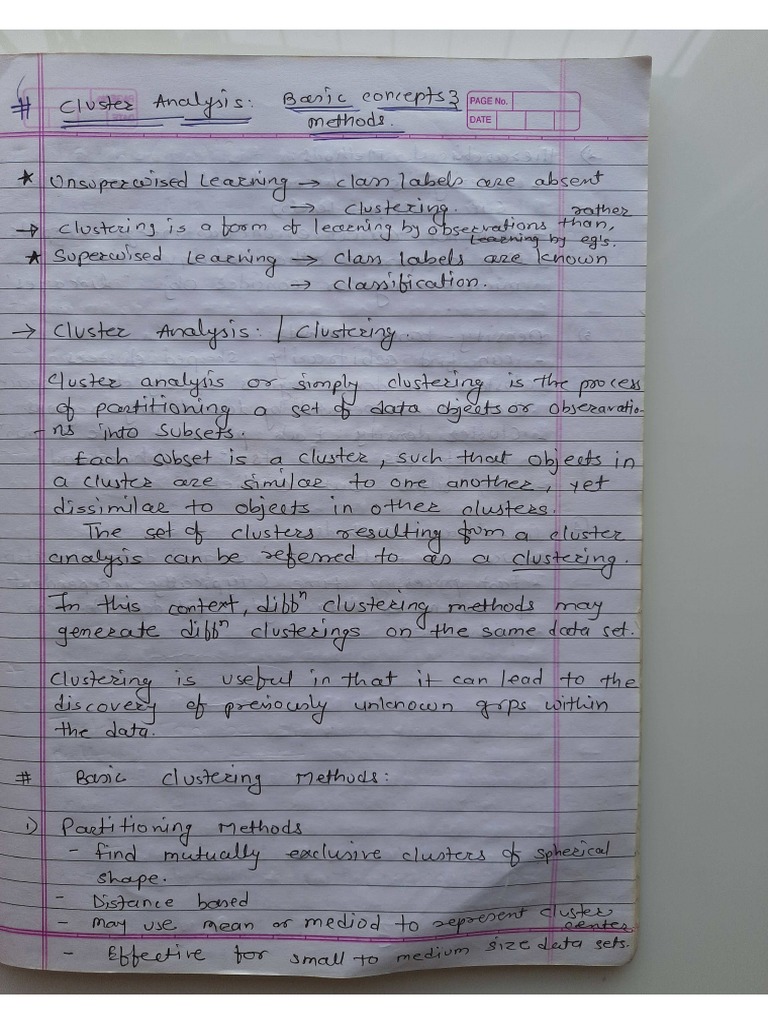 # Cluster Analysis: Basic concepts &
methods.
PAGE No.
DATE
* Unsuperwised Learning → class labels are absent
→ clustering.
→ clustering is a form of learning by observations rather than,
learning by eg's.
* Superwised Learning → class labels are known
→ classification.
→ Cluster Analysis: / Clustering.
Cluster analysis or simply clustering is the process
of partitioning a set of data objects or obseravatio-
-ns into subsets.
Each subset is a cluster, such that objects in
a cluster are similar to one another, yet
dissimilar to objects in other clusters.
The set of clusters resulting from a cluster
analysis can be referred to as a clustering.
In this context, diffⁿ clustering methods may
generate diffⁿ clusterings on the same data set.
Clustering is useful in that it can lead to the
discovery of previously unknown grps within
the data.
# Basic Clustering Methods:
1) Partitioning Methods
- find mutually exclusive clusters of spherical
shape.
- Distance based
- may use mean or mediod to represent cluster
center
- Effective for small to medium size data sets.